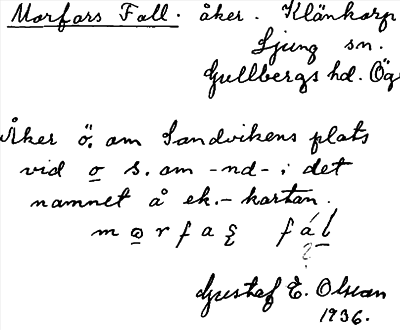 Morfars Fall. åker. Klänkorp
Ljung sn.
Gullbergs hd. Ög
Åker ö. om Sandvikens plats
vid o s. om -nd- i det
namnet å ek.- kartan.
m o r f a fál
?
Gustaf E. Olsson
1936.